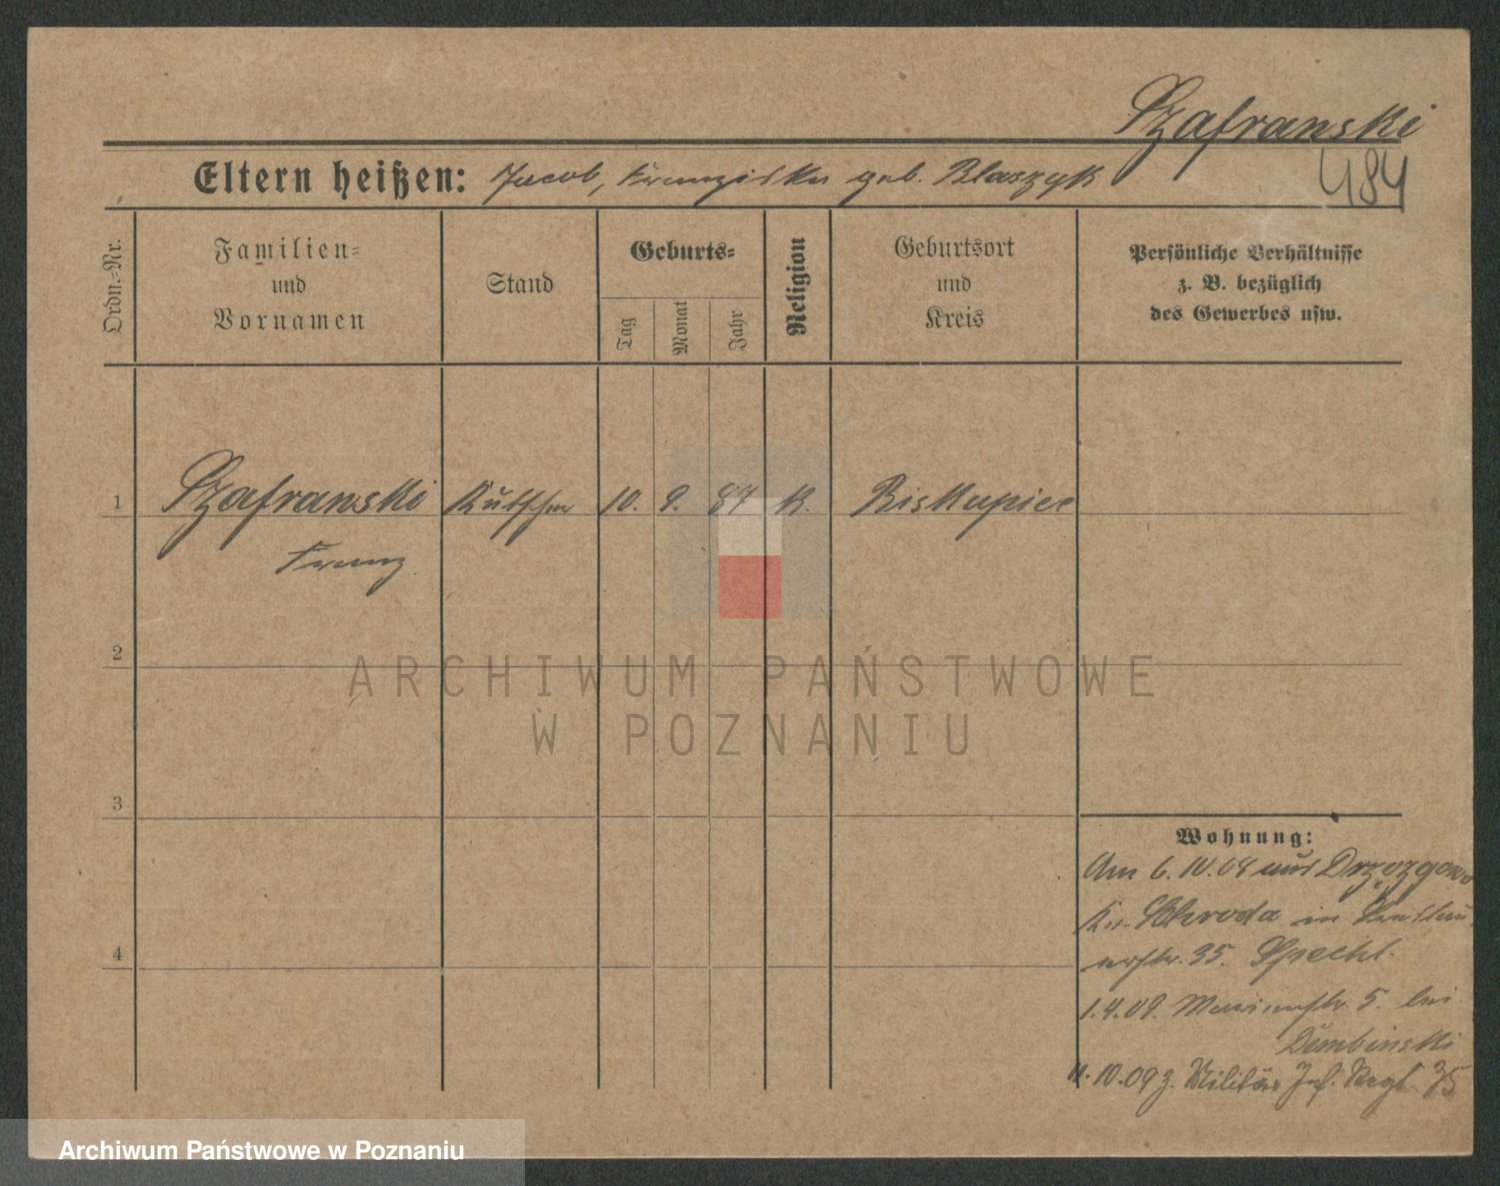 Szafranski
484
Eltern heißen: Jacob, Franziska geb. Blaszyk
Ordn.-Nr.
Familien-
und
Vornamen
Stand
Geburts-
Tag
Monat
Jahr
Religion
Geburtsort
und
Kreis
Persönliche Verhältnisse
z. B. bezüglich
des Gewerbes usw.
1 Szafranski Kutscher 10. 9. 87 K. Biskupice
Franz
2
3
4
Wohnung:
Am 6.10.08 aus Drzązgowo
Kr. Schroda in
str. 35. Specht.
1.4.09. str. 5. bei
Dembinski
.10.09 z. Militär Inf. Regt. 35
ARCHIWUM PAŃSTWOWE
W POZNANIU
Archiwum Państwowe w Poznaniu